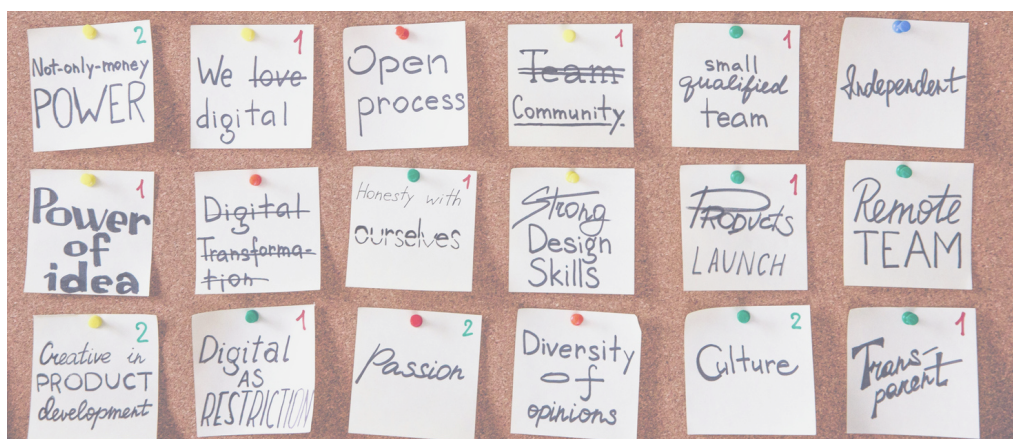 2
Not-only-money
POWER
1
We love
digital
Open
process
1
Team
Community.
1
small
qualified
team
Independent
1
Power
of
idea
Digital
Transforma-
tion
1
Honesty with
ourselves
Strong
Design
Skills
1
PRODUCTS
LAUNCH
Remote
TEAM
2
Creative in
PRODUCT
development
1
Digital
AS
RESTRICTION
2
Passion
Diversity
of
opinions
2
Culture
1
Trans-
parent